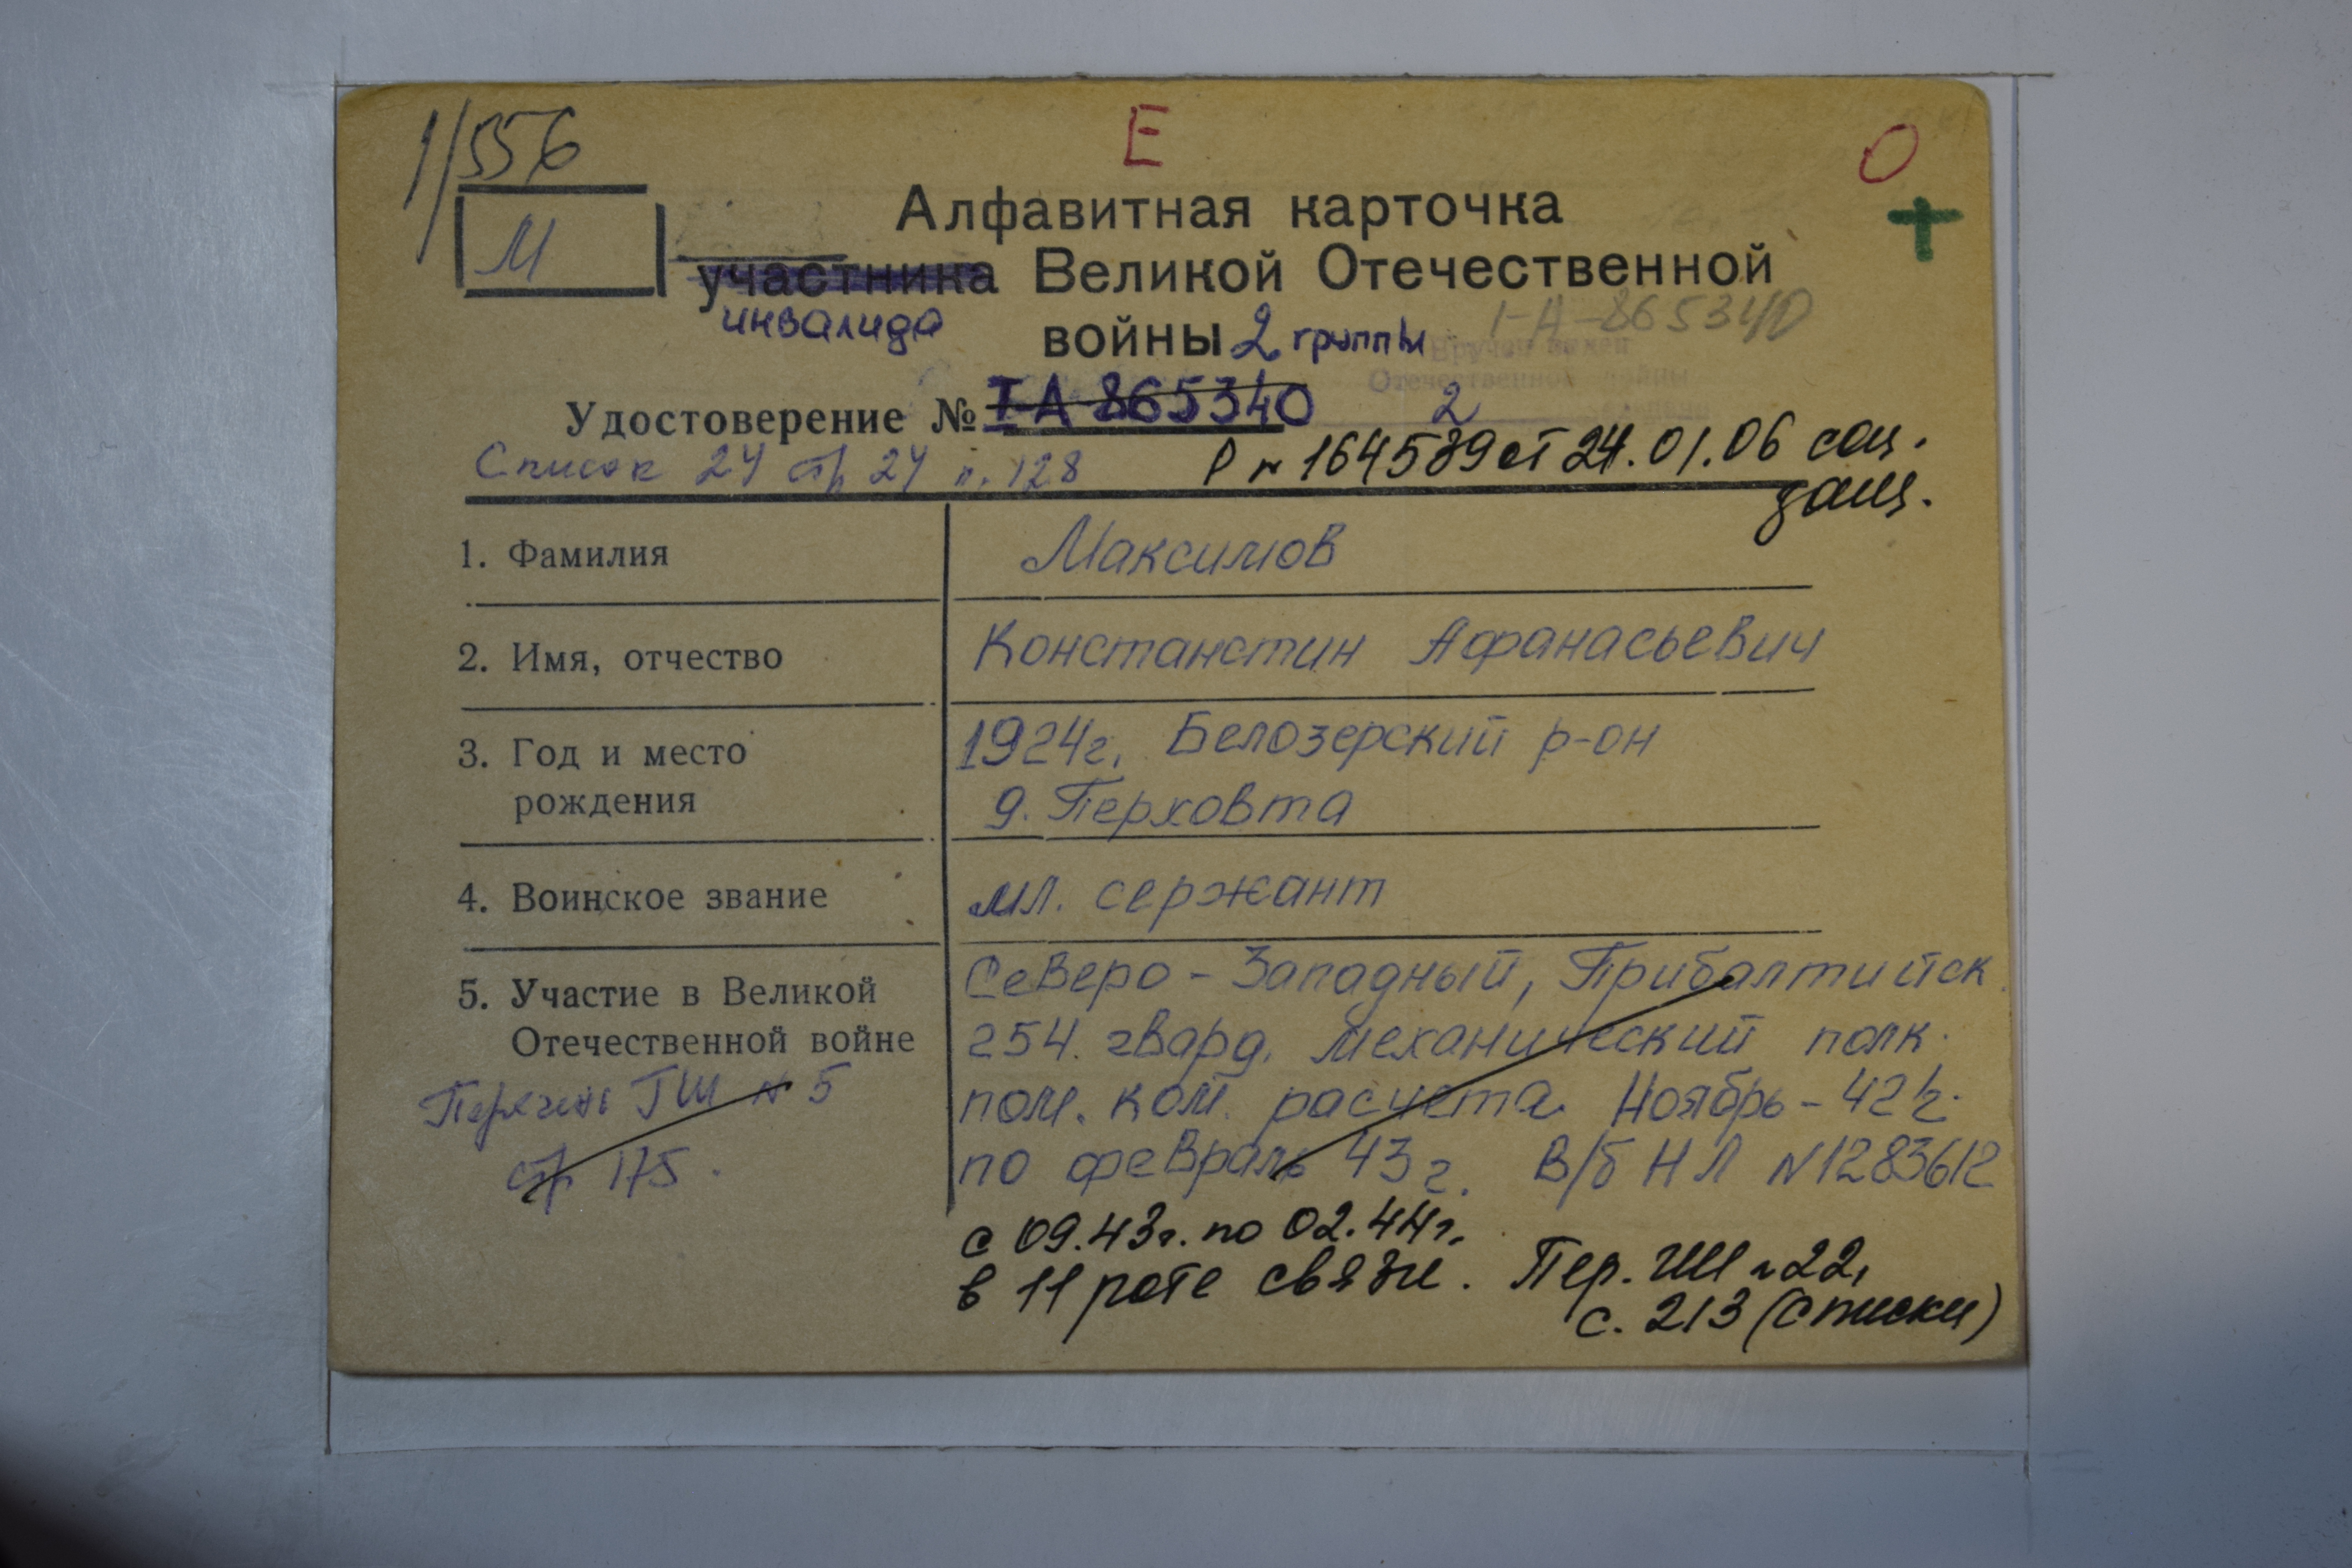 1/556
Е
О
М
Алфавитная карточка
участника Великой Отечественной
инвалида
войны 2 группы
I-А-865340
Вручен
Отечественной войны
Удостоверение № I-А-865340
2
Список 24 стр 24 п. 128
Р № 164589 от 24.01.06 соц.
защ.
1. Фамилия
Максимов
2. Имя, отчество
Констанстин Афанасьевич
3. Год и место
рождения
1924г. Белозерский р-он
д. Перховта
4. Воинское звание
мл. сержант
5. Участие в Великой
Отечественной войне
Перечень ГШ № 5
стр 175.
Северо-Западный, Прибалтийск.
254. гвард. механический полк.
пом. ком. расчета. Ноябрь-42г.
по февраль 43г. В/б НЛ №1283612
с 09.43г. по 02.44г.
в 11 роте связи. Пер. ГШ №22,
с. 213 (списки)